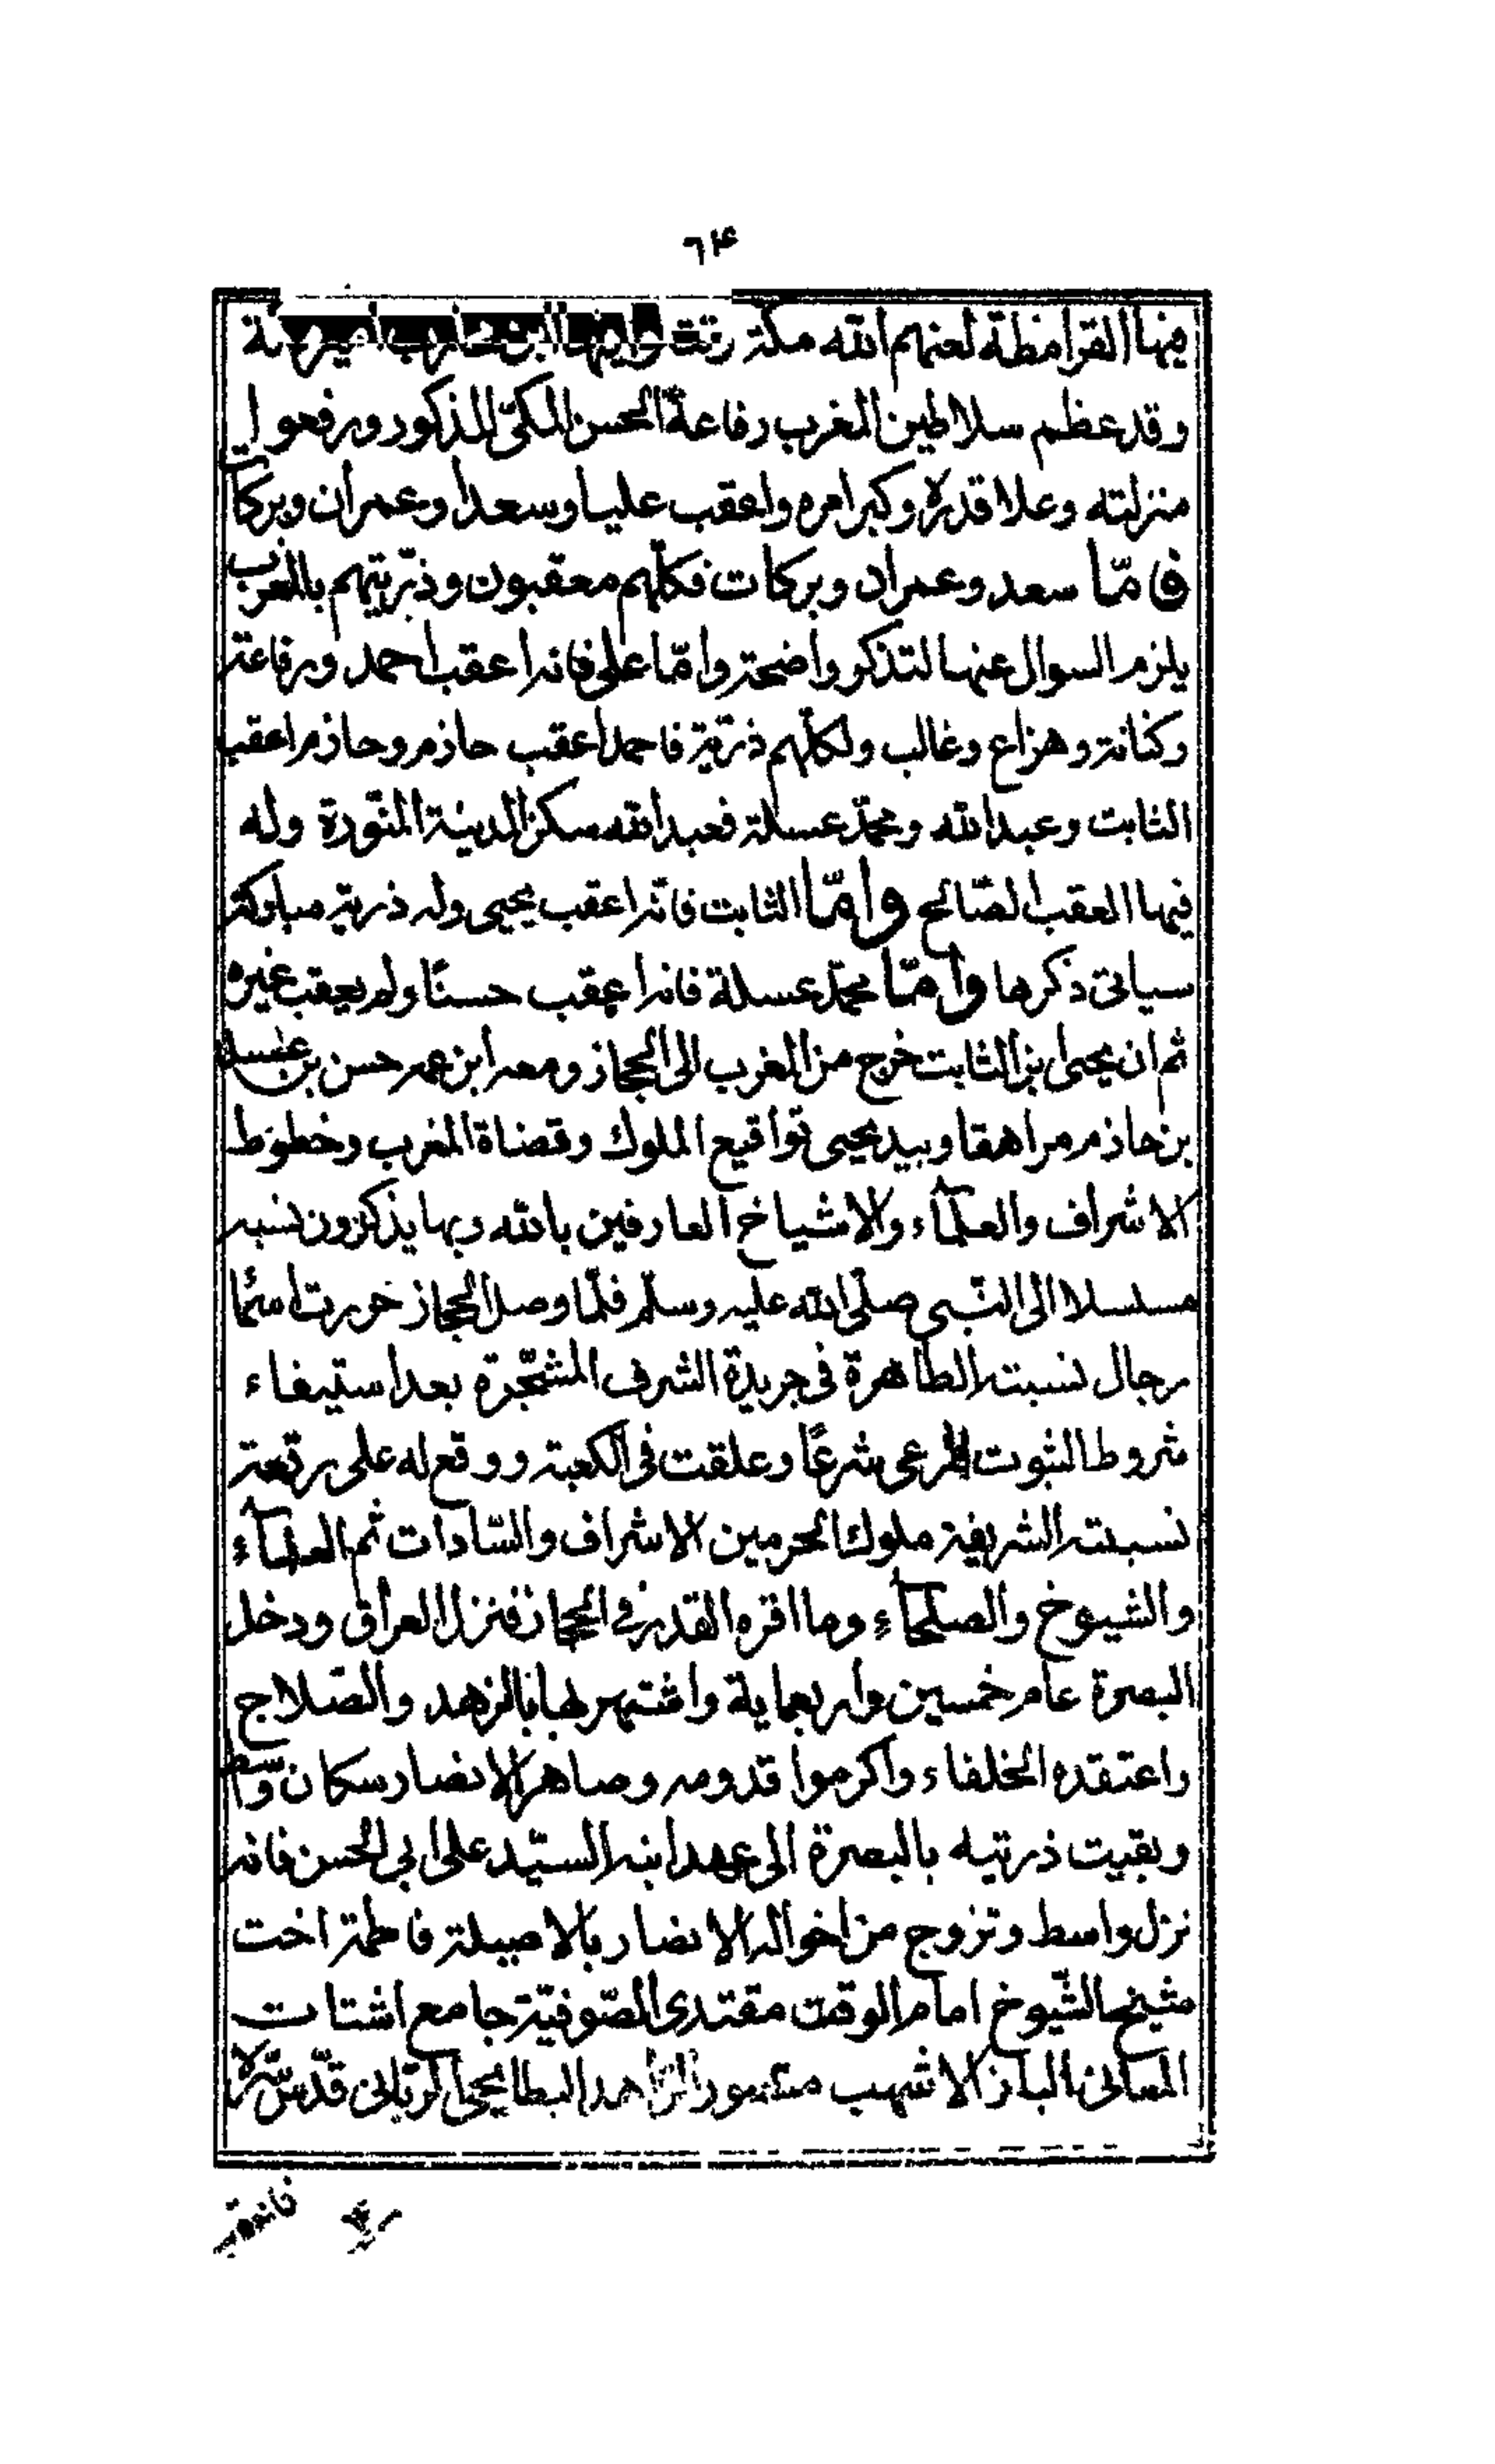 ٦٤
فيها القرامطة لعنهم الله مكة
وقد عظم سلاطين المغرب رفاعة الحسن المكى المذكور ورفعوا
منزلته وعلا قدره وكبر امره واعقب عليا وسعدا وعمران وبركات
فامّا سعد وعمران وبركات فكلهم معقبون وذريتهم بالمغرب
يلزم السوال عنها لتذكر واضحة وامّا على فانه اعقب احمد ورفاعة
وكنانة وهزاع وغالب ولكلهم ذرية فاحمد اعقب حازم وحازم اعقب
الثابت وعبدالله ومحمد عسلة فعبدالله سكن المدينة المنورة وله
فيها العقب الصّالح وامّا الثابت فانه اعقب يحيى وله ذرية مباركة
سياتى ذكرها وامّا محمّد عسلة فانه اعقب حسنًا ولم يعقب غيره
ثم ان يحيى بن الثابت خرج من المغرب الى الحجاز ومعه ابن عمه حسن بن عسلة
بن حازم مراهقا وبيد يحيى تواقيع الملوك وقضاة المغرب وخطوط
الاشراف والعلمآء والاشياخ العارفين بالله وبها يذكرون نسبه
مسلسلا الى النّبى صلّى الله عليه وسلّم فلمّا وصل الحجاز حررت اسما
رجال نسبته الطاهرة فى جريدة الشرف المشجّرة بعد استيفاء
شروط الثبوت المرعى شرعًا وعلقت فى الكعبة ووقع له على رقعة
نسبته الشريفة ملوك الحرمين الاشراف والسّادات ثم العلمآء
والشيوخ والصلحآء وما اقره القدر فى الحجاز فنزل العراق ودخل
البصرة عام خمسين واربعماية واشتهر بها بالزهد والصّلاح
واعتقده الخلفاء واكرموا قدومه وصاهر الانصار سكان واسط
وبقيت ذريته بالبصرة الى عهد ابنه السيّد على ابى الحسن فانه
نزل واسط وتزوج من اخواله الانصار بالاصيلة فاطمة اخت
شيخ الشّيوخ امام الوقت مقتدى الصّوفيّة جامع اشتات
المعانى الباز الاشهب منصور الزاهد البطايحى الربانى قدّس سرّه